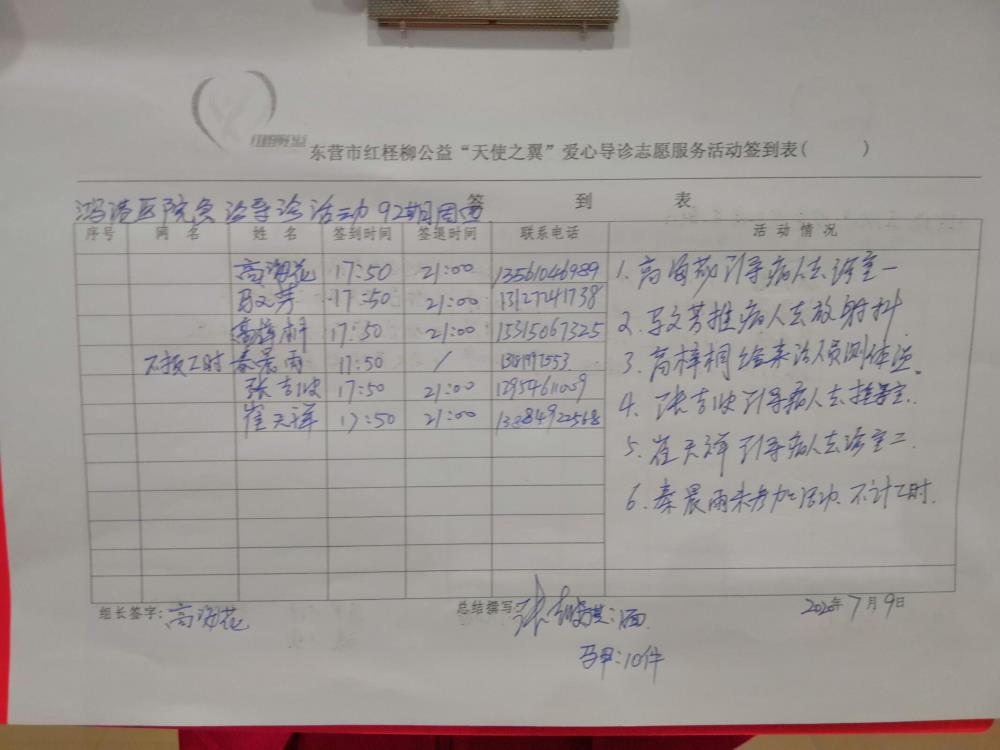 东营市红柽柳公益“天使之翼”爱心导诊志愿服务活动签到表( )
签 到 表
鸿港医院急诊导诊活动92期周四
序号 网 名 姓 名 签到时间 签退时间 联系电话 活 动 情 况
高海花 17:50 21:00 13561046989
马文芳 17:50 21:00 13127241738
高梓桐 17:50 21:00 15315067325
不报工时 秦晨雨 17:50 /
张 17:50 21:00
崔天祥 17:50 21:00
1. 高海花引导病人去诊室一
2. 马文芳推病人去放射科
3. 高梓桐给来诊人员测体温
4. 张 引导病人去
5. 崔天祥引导病人去诊室二
6. 秦晨雨未参加活动、不计工时.
组长签字: 高海花
总结撰写: 张
马甲:10件
2020年7月9日